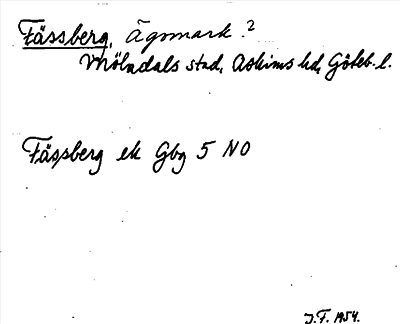 Fässberg, Ägomark.?
Mölndals stad, Askims hd, Göteb. l.
Fässberg ek Gbg 5 NO
J.F. 1954.